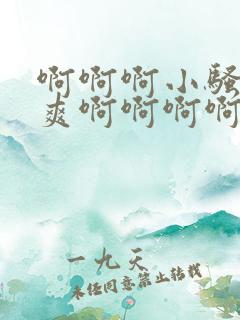 啊啊啊小骚
爽啊啊啊啊
一九天
未经同意禁止转载